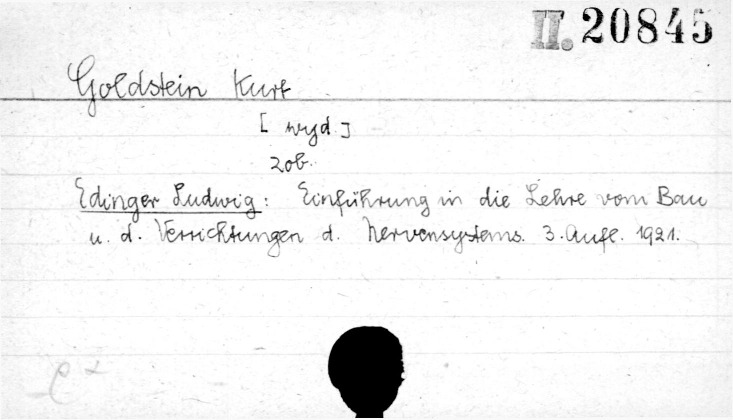 II. 20845
Goldstein Kurt
[wyd.]
zob.
Edinger Ludwig: Einführung in die Lehre vom Bau
u. d. Verrichtungen d. Nervensystems. 3. Aufl. 1921.